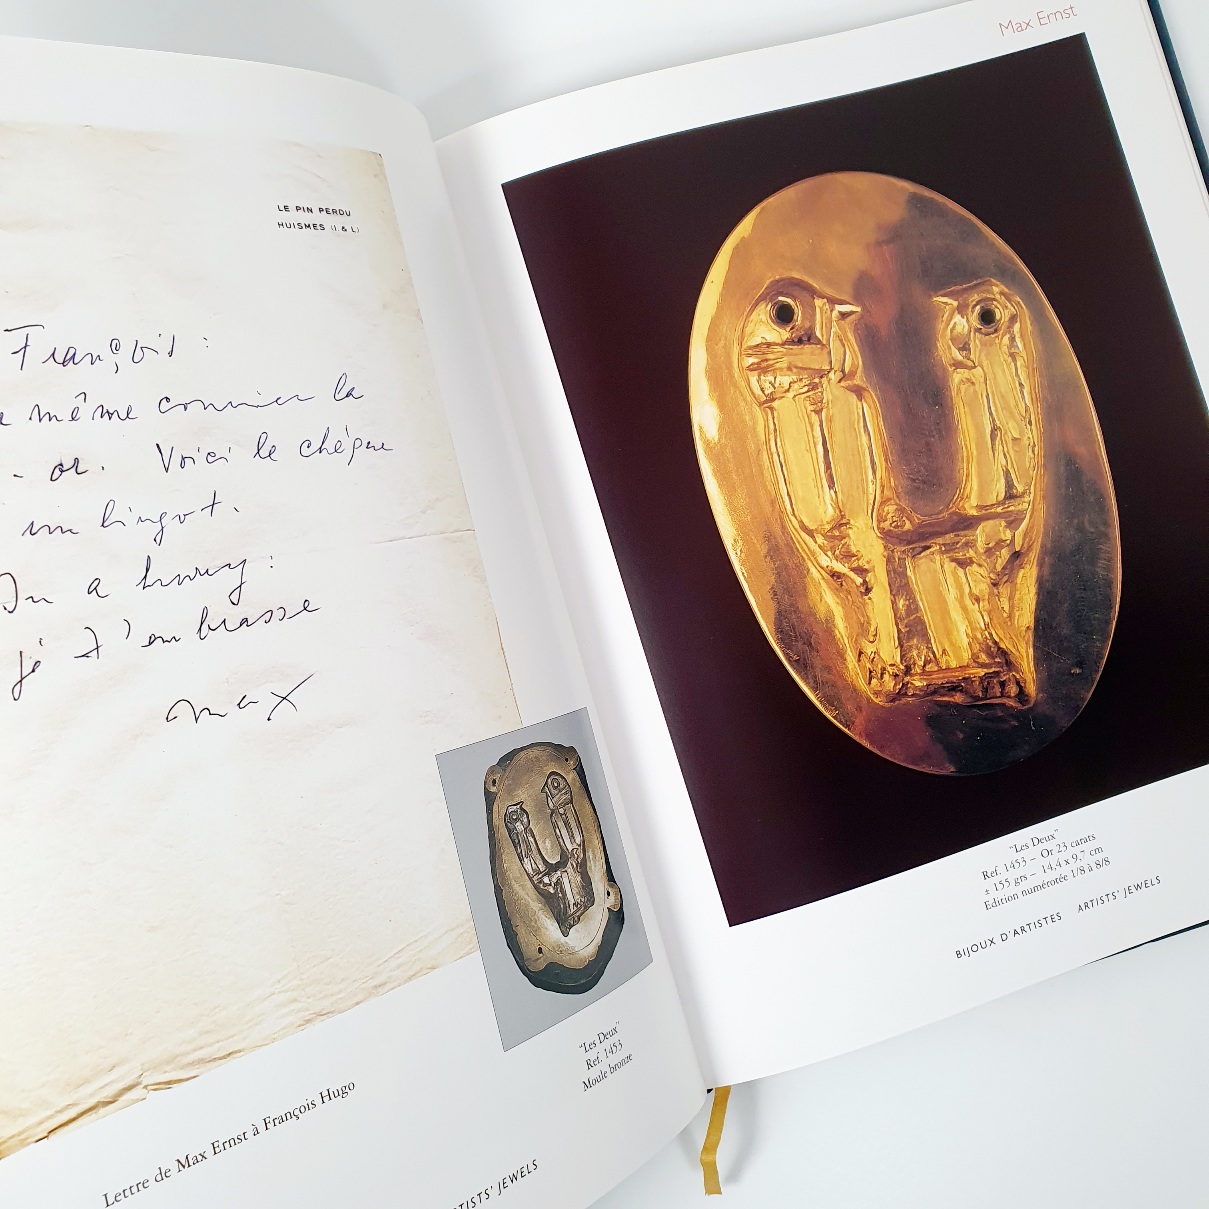 LE PIN PERDU
HUISMES (I. & L)
François :
même la
or. Voici le chèque
lingot.
a
je t'embrasse
max
"Les Deux"
Ref. 1453
Moule bronze
Lettre de Max Ernst à François Hugo
TISTS' JEWELS
Max Ernst
"Les Deux"
Ref. 1453 – Or 23 carats
± 155 grs – 14,4 x 9,7 cm
Edition numérotée 1/8 à 8/8
BIJOUX D'ARTISTES ARTISTS' JEWELS